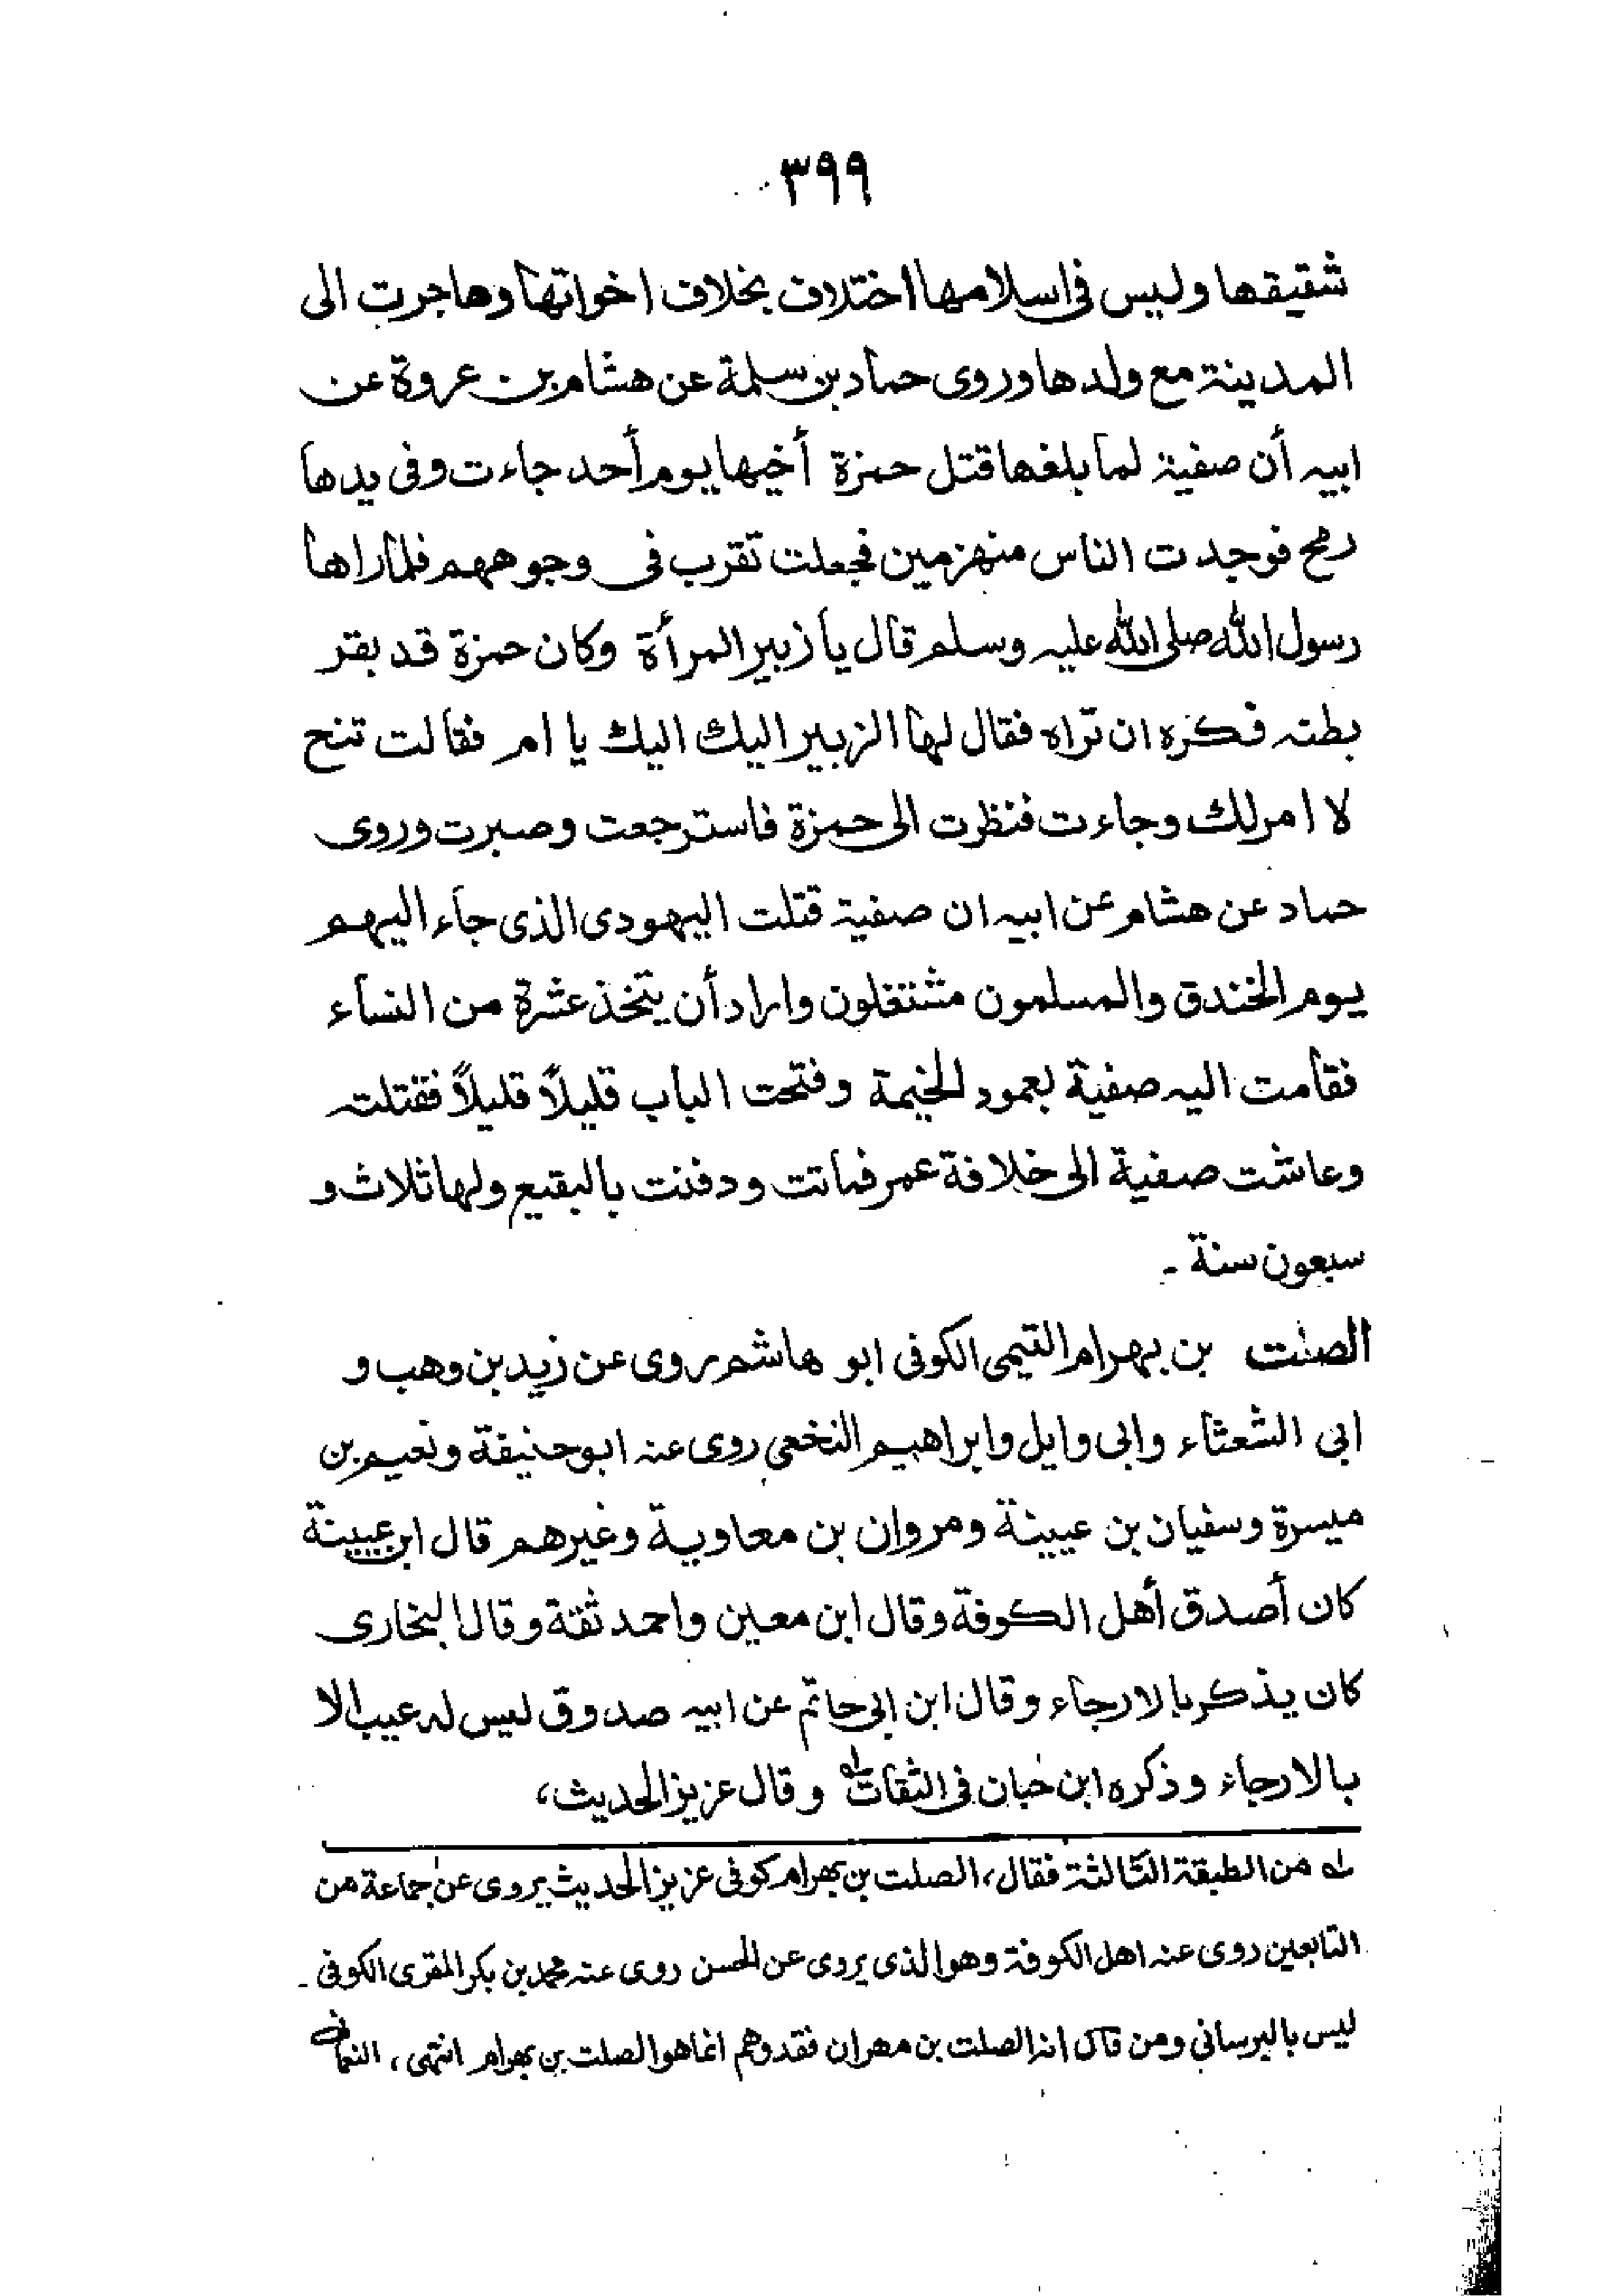 ٣٩٩
شقيقها وليس فى اسلامها اختلاف بخلاف اخواتها وهاجرت الى
المدينة مع ولدها وروى حماد بن سلمة عن هشام بن عروة عن
ابيه أن صفية لما بلغها قتل حمزة أخيها يوم أحد جاءت وفى يدها
رمح فوجدت الناس منهزمين فجعلت تقرب فى وجوههم فلما راها
رسول الله صلى الله عليه وسلم قال يا زبير المرأة وكان حمزة قد بقر
بطنه فكره ان تراه فقال لها الزبير اليك اليك يا ام فقالت تنح
لا ام لك وجاءت فنظرت الى حمزة فاسترجعت وصبرت وروى
حماد عن هشام عن ابيه ان صفية قتلت اليهودى الذى جاء اليهم
يوم الخندق والمسلمون مشتغلون واراد أن يتخذ عشرة من النساء
فقامت اليه صفية بعمود الخيمة وفتحت الباب قليلاً قليلاً فقتلته
وعاشت صفية الى خلافة عمر فماتت ودفنت بالبقيع ولها ثلاث و
سبعون سنة ـ
الصلت بن بهرام التيمى الكوفى ابو هاشم روى عن زيد بن وهب و
ابى الشعثاء وابى وايل وابراهيم النخعى روى عنه ابو حنيفة ونعيم بن
ميسرة وسفيان بن عيينة ومروان بن معاوية وغيرهم قال ابن عيينة
كان أصدق أهل الكوفة وقال ابن معين واحمد ثقة وقال البخارى
كان يذكر بالارجاء وقال ابن ابى حاتم عن ابيه صدوق ليس له عيب الا
بالارجاء وذكره ابن حبان فى الثقات له وقال عزيز الحديث،
له من الطبقة الثالثة فقال، الصلت بن بهرام كوفى عزيز الحديث يروى عن جماعة من
التابعين روى عنه اهل الكوفة وهو الذى يروى عن الحسن روى عنه محمد بن بكر المقرى الكوفى ـ
ليس بالبرسانى ومن قال انه الصلت بن مهران فقد وهم انما هو الصلت بن بهرام انتهى، النعمانى